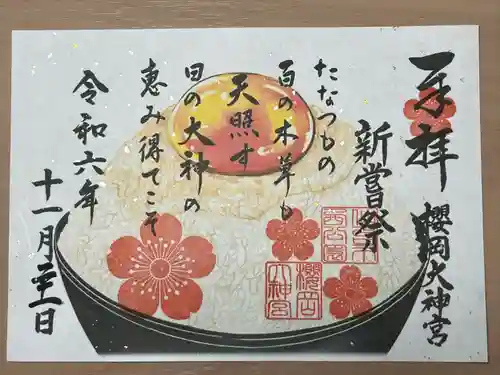 奉拝
櫻岡大神宮
新嘗祭
たなつもの
百の木草も
天照す
日の大神の
恵み得てこそ
令和六年
十一月二十二日
櫻岡
大神宮